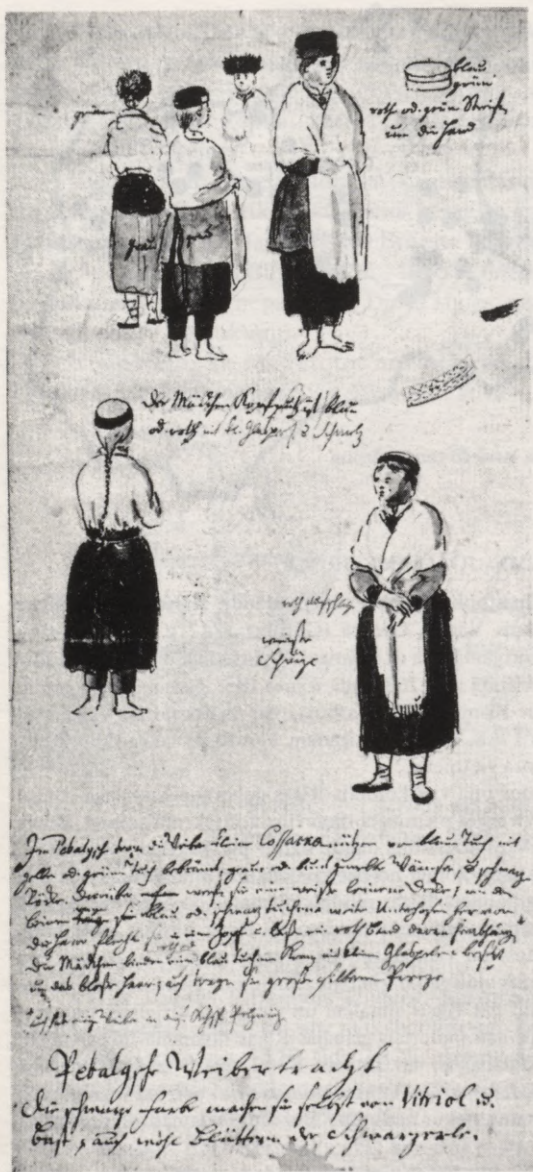 blau
grün
roth od. grün Streif
um die Hand
grün
grau
grau
Der Mädchen Kopfputz ist blau
od. roth mit kl. Glasperl u Schmelz
roth Aufschlag
weisse
Schürze
Im Pebalgsch tragen die Weiber kleine Cossacken mützen von blau Tuch mit
gelb od. grünem Tuch bebrämt, graue od. bunt gewirkt Wämser, u schwarze
Röcke. Darüber werfen sie eine weisse leinene Decke, an den
Beinen blau od. schwarz tuchene weite Unterhosen hervor
das Haar flecht sie in ein Zopf u. lassen ein roth Band daran herabhäng
Die Mädchen binden ein blau tuchen Kranz mit klein Glasperlen besetz
um das blosse Haar; auch tragen sie grosse silberne Preeze
Pebalgsche Weibertracht
die schwarze Farbe machen sie selbst von Vitriol u.
Bast, auch wohl Blättern der Schwarzerle.